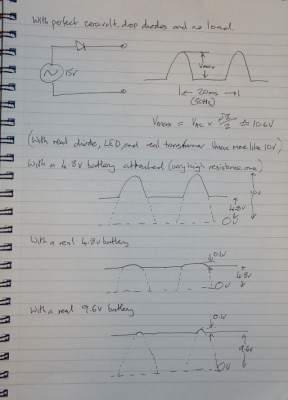 With perfect zero volt drop diodes and no load.
15V
Vmax
20ms
(50Hz)
Vmax = VAC × √2/2 ≈ 10.6V
(With real diode, LED, and real transformer Vmax more like 10V)
With a 4.8V battery attached (very high resistance one)
10V
4.8V
0V
With a real 4.8V battery
0.1V
4.8V
0V
With a real 9.6V battery
0.1V
9.6V
0V